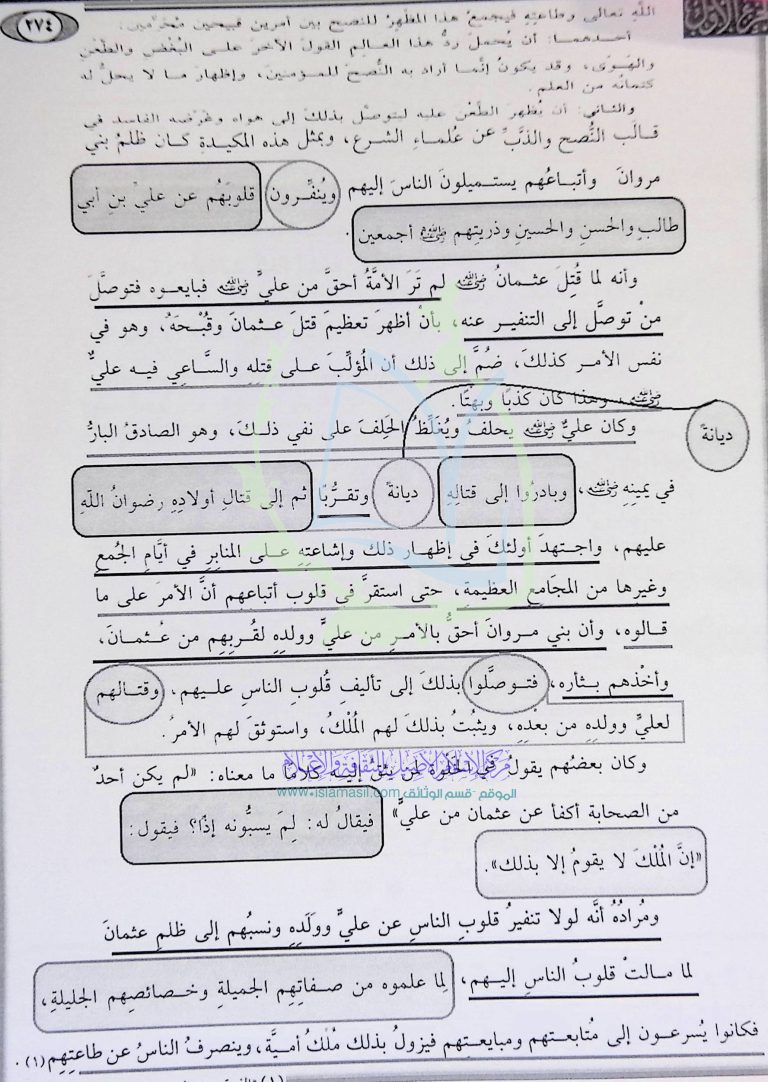 ٢٧٤
الله تعالى وطاعته فيجمع هذا المظهر للنصح بين أمرين قبيحين محرمين:
أحدهما: أن يُحمل ردُّ هذا العالِم القول الآخر على البُغض والطَّعن
والهَوَى، وقد يكونُ إنَّما أراد به النُّصحَ للمؤمنين، وإظهارَ ما لا يحلُّ له
كتمانُه من العلم.
والثاني: أن يُظهِرَ الطَّعْنَ عليه ليتوصَّل بذلك إلى هواه وغرضه الفاسد في
قالَب النُّصح والذبِّ عن عُلماءِ الشرع، وبمثل هذه المكيدةِ كان ظلمُ بني
مروانَ وأتباعُهم يستميلونَ الناسَ إليهم ويُنفِّرون قلوبَهُم عن عليِّ بنِ أبي
طالبٍ والحسنِ والحسينِ وذريتِهم رضي الله عنهم أجمعين.
وأنه لما قُتِلَ عثمانُ رضي الله عنه لم تَرَ الأمَّةُ أحقَّ من عليٍّ رضي الله عنه فبايعوه فتوصَّلَ
مَنْ توصَّل إلى التنفيرِ عنه، بأنْ أظهرَ تعظيمَ قتلَ عثمانَ وقُبْحَهُ، وهو في
نفس الأمر كذلكَ، ضُمَّ إلى ذلك أن المُؤلِّبَ على قتلِهِ والسَّاعي فيه عليٌّ
رضي الله عنه، وهذا كان كَذبًا وبهتًا.
وكان عليٌّ رضي الله عنه يحلفُ ويُغَلِّظُ الحَلِفَ على نفي ذلكَ، وهو الصادقُ البارُّ
ديانةً
في يمينِهِ رضي الله عنه، وبادرُوا إلى قتالِهِ ديانةً وتقرُّبًا ثم إلى قتالِ أولادِهِ رضوانُ اللهِ
عليهم، واجتهدَ أولئكَ في إظهار ذلك وإشاعتِهِ على المنابرِ في أيَّامِ الجُمع
وغيرِها من المجَامعِ العظيمةِ، حتى استقرَّ في قلوب أتباعهم أنَّ الأمرَ على ما
قالوه، وأن بني مروانَ أحقُّ بالأمرِ من عليٍّ وولدِهِ لقُربِهم من عُثمانَ،
وأخْذِهم بثأرِه، فتوصَّلوا بذلكَ إلى تأليفِ قُلوبِ الناسِ عليهم، وقتالهم
لعليٍّ وولدِهِ من بعْدِهِ، ويثبُتُ بذلكَ لهم المُلْكُ، واستوثقَ لهم الأمرُ.
مركز الإشعاع الإسلامي الثقافية والإعلام
وكان بعضُهم يقولُ في الخَلْوةِ لمن يثقُ إليه كلامًا ما معناه: «لم يكن أحدٌ
الموقع - قسم الوثائق www.islamasil.com
من الصحابة أكفأ عن عثمان من عليٍّ» فيقالُ له: لِمَ يسبُّونه إذًا؟ فيقول:
«إنَّ المُلْكَ لا يقومُ إلا بذلك».
ومُرادُهُ أنَّه لولا تنفيرُ قلوبِ الناسِ عن عليٍّ ووَلَدِهِ ونسبُهم إلى ظلمِ عثمانَ
لما مالتْ قلوبُ الناسِ إليهم، لِما علموه من صفاتِهِم الجميلةِ وخصائصِهم الجليلةِ،
فكانوا يُسرعون إلى مُتابعتهم ومبايعتهم فيزولُ بذلك مُلْكُ أميَّةَ، وينصرفُ الناسُ عن طاعتِهِم (١).